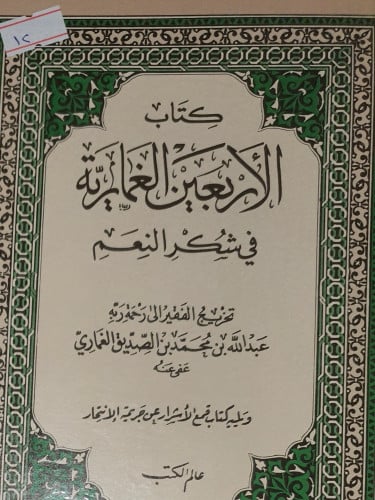 ١٢
كتاب
الأربعين الغمارية
في شكر النعم
تخريج الفقير إلى رحمة ربه
عبد الله بن محمد بن الصديق الغماري
عفي عنه
ويليه كتاب قمع الأشرار عن جريمة الانتحار
عالم الكتب